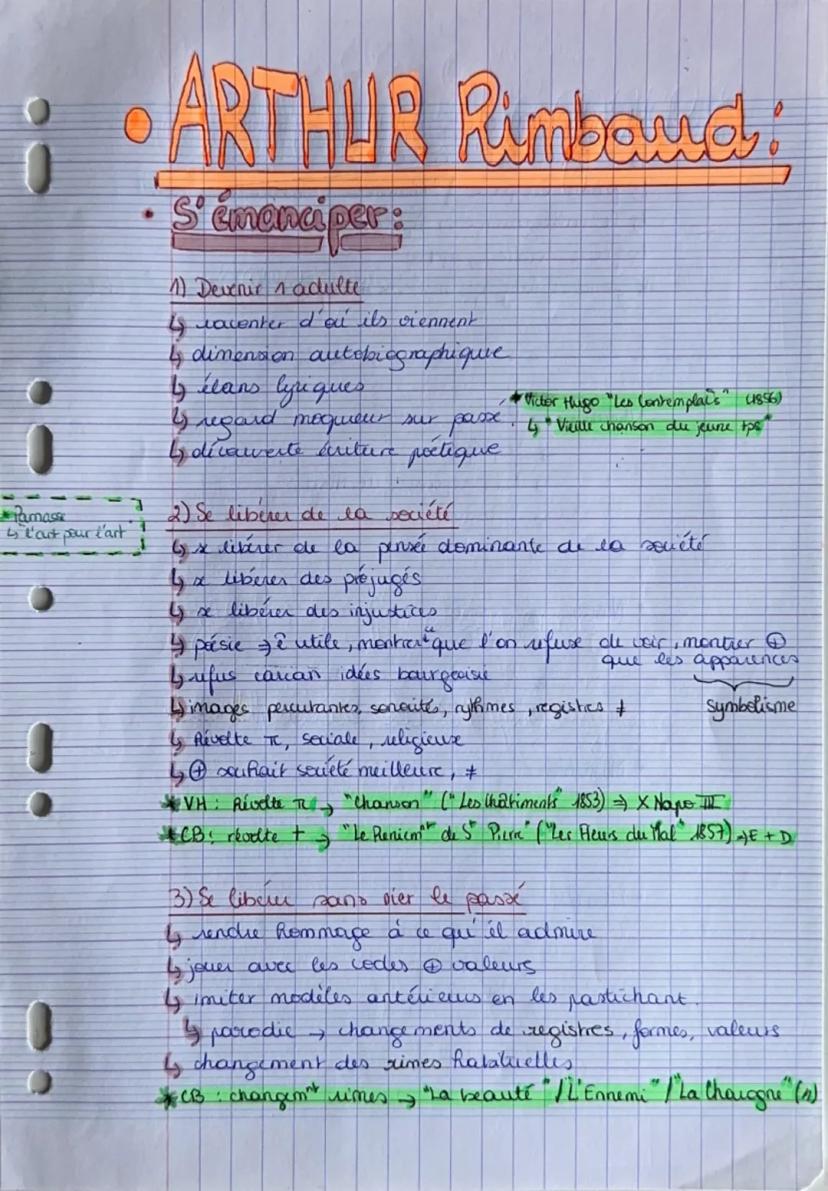 • ARTHUR Rimbaud :
• S'émanciper :
1) Devenir 1 adulte
↳ raconter d'où ils viennent
↳ dimension autobiographique
↳ élans lyriques
↳ regard moqueur sur passé.
* Victor Hugo "Les Contemplat°s" (1856)
↳ "Vieille chanson du jeune tps"
↳ découverte écriture poétique
* Parnasse
↳ l'art pour l'art
2) Se libérer de la société
↳ se libérer de la pensée dominante de la société
↳ se libérer des préjugés
↳ se libérer des injustices
↳ poésie → ê utile, montrer "ce que l'on refuse de voir, montrer ⊕
que les apparences
↳ refus idées bourgeoisie
↳ images percutantes, sonorités, rythmes, registres ≠
symbolisme
↳ Révolte π, sociale, religieux
↳ ⊕ souhait société meilleure, ≠
* VH : Révolte π → "Chanson" ("Les Châtiments" 1853) ⇒ X Napo III
* CB : révolte † → "Le Reniemnt de St Pierre" ("Les Fleurs du Mal" 1857) → E + D
3) Se libérer sans nier le passé
↳ rendre hommage à ce qu'il admire
↳ jouer avec les codes ⊕ valeurs
↳ imiter modèles antérieurs en les pastichant.
↳ parodie → changements de registres, formes, valeurs
↳ changement des rimes habituelles
* CB : changemnt rimes → "La beauté" / L'Ennemi" / "La Charogne" (n)